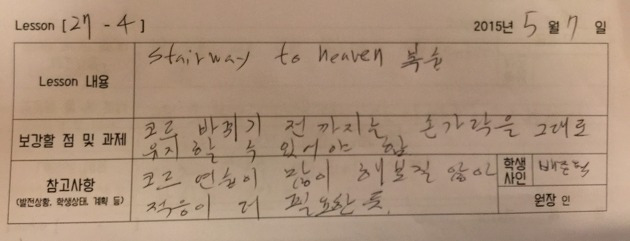 Lesson [27 - 4] 2015년 5 월 7 일
Lesson 내용 stairway to heaven 복습
보강할 점 및 과제 코루 바뀌기 전 까지는 손가락을 그대로
유지할 수 있어야 함
참고사항 코르 연습이 많이 해보질 않아 학생
(발전상황, 학생상태, 계획 등) 적응이 더 필요한 듯. 사인
원장 인